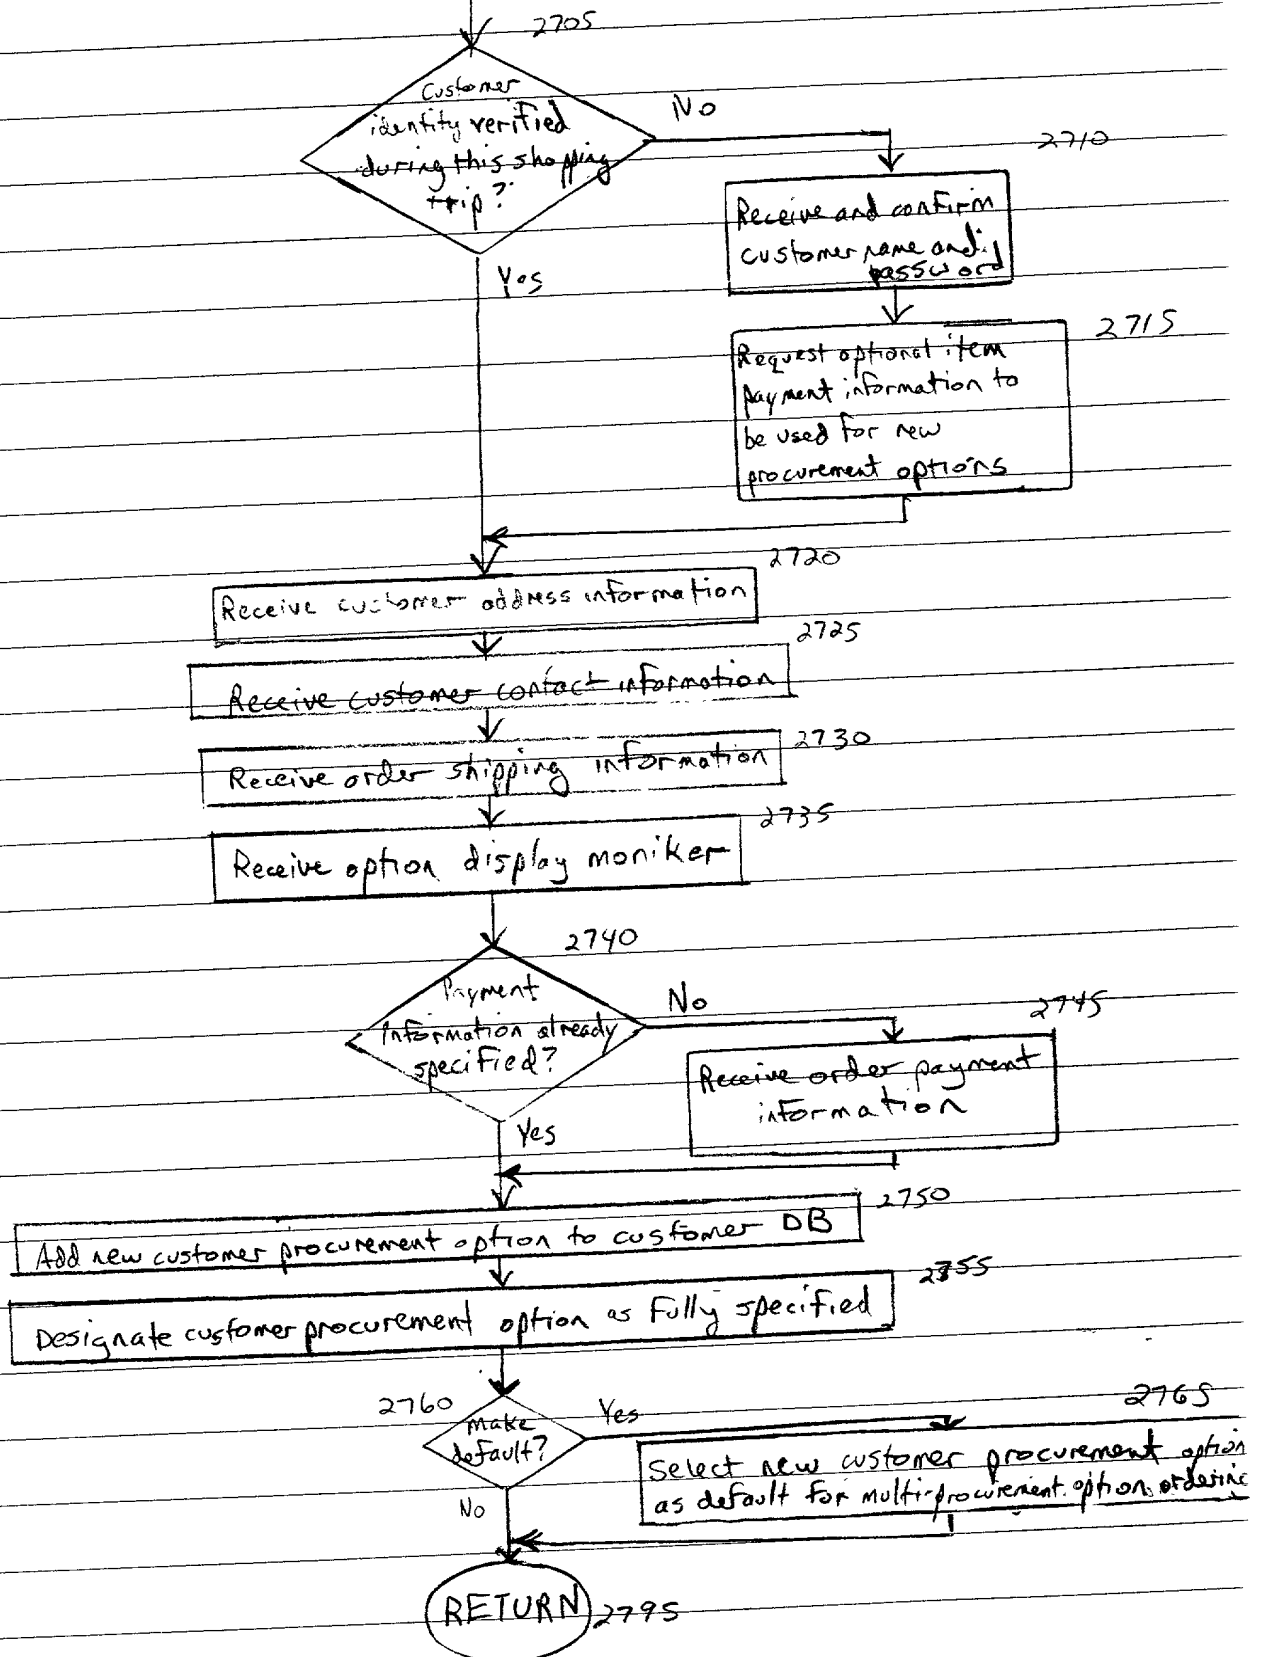 2705
Customer
identity verified
during this shopping
trip?
No
Yes
2710
Receive and confirm
customer name and
password
2715
Request optional item
payment information to
be used for new
procurement options
2720
Receive customer address information
2725
Receive customer contact information
2730
Receive order shipping information
2735
Receive option display moniker
2740
Payment
information already
specified?
No
Yes
2745
Receive order payment
information
2750
Add new customer procurement option to customer DB
2755
Designate customer procurement option as fully specified
2760
make
default?
Yes
No
2765
Select new customer procurement option
as default for multi-procurement option
RETURN
2795